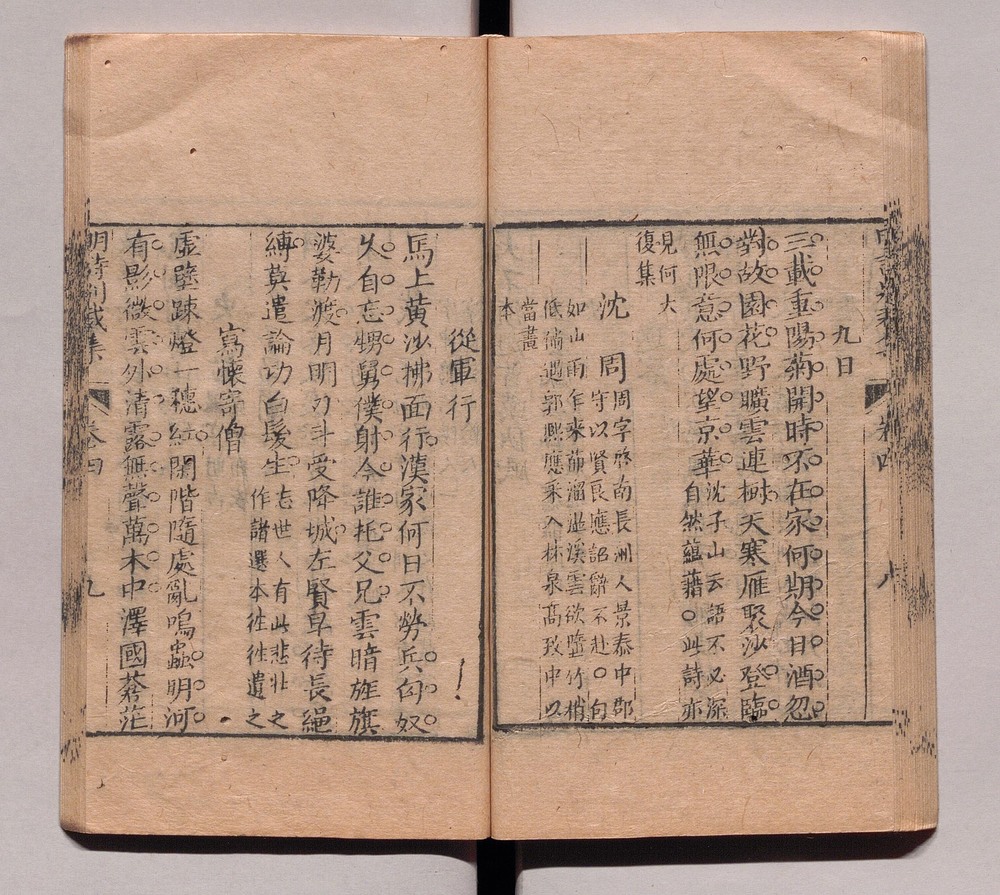 九日
三載重陽菊開時不在家何期今日酒忽
對故園花野曠雲連樹天寒雁聚沙登臨
無限意何處望京華沈子山云語不必深
自然蘊藉○此詩亦
見何大
復集
沈周周字啓南長洲人景泰中郡
守以賢良應詔辭不赴○句
如山雨乍來茆溜溢溪雲欲墮竹梢
低倘遇郭熙應采入林泉高致中以
當畫
本
卷四
八
從軍行
馬上黃沙拂面行漢家何日不勞兵匈奴
久自忘甥舅僕射今誰托父兄雲暗旌旗
婆勒渡月明刁斗受降城左賢早待長繩
縛莫遣論功白髮生忘世人有此悲壯之
作諸選本往往遺之
寫懷寄僧
虛壁疎燈一穗紅閑階隨處亂鳴蟲明河
有影微雲外清露無聲萬木中澤國蒼茫
明詩別裁集
卷四
九